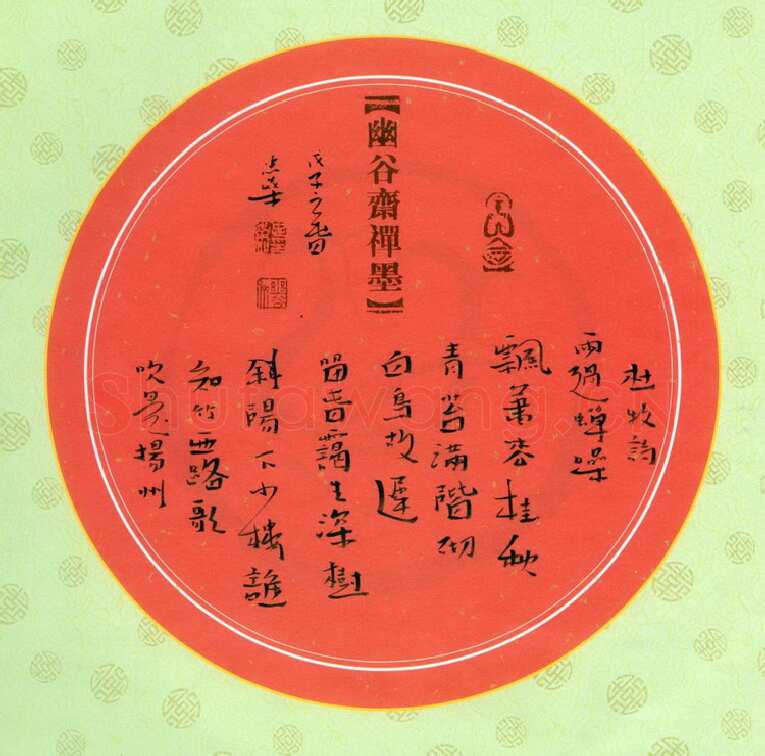 【幽谷齋禪墨】
杜牧詩
雨過蟬噪
飄蕭枩桂秋
青苔滿階砌
白鳥故遲
留暮靄生深樹
斜陽下小樓誰
知竹西路歌
吹是揚州
戊子之春
Shufawang.cn